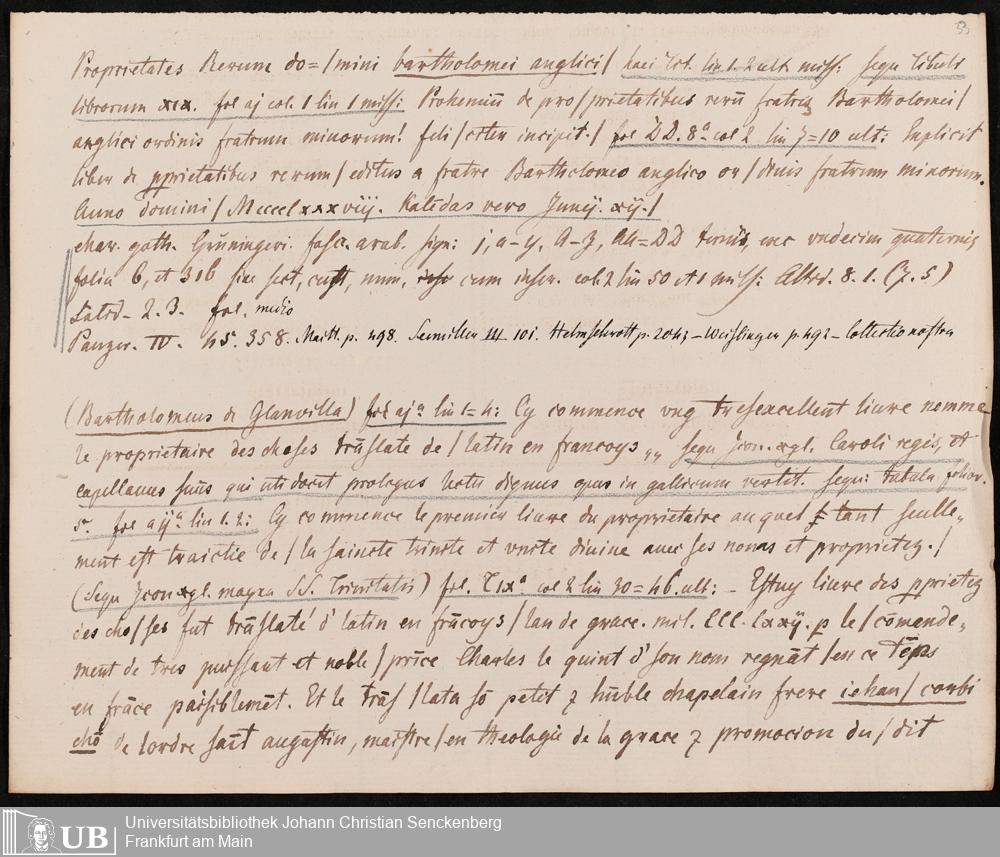 53
Proprietates Rerum do=/mini bartholomei anglici/ haec tit. lin 1. 2 ult miss: sequ tituli
librorum xix. fol aj col. 1 lin 1 miss: Prohemiū de pro/prietatibus rerū fratris Bartholomei/
anglici ordinis fratrum minorum! feli/citer incipit./ fol DD. 8ᵃ col 2 lin 7=10 ult: Explicit
liber de ꝓprietatibus rerum/ editus a fratre Bartholomeo anglico or/dinis fratrum minorum.
Anno domini/ Mcccclxxxviij. Kalēdas vero Junij. xij./
char. goth. Grüningeri. fasc. arab. sign: j, a-y, A-Z, AA=DD ternis, nec undecim quaternis
folia 6, et 316 sine cust, num, cum inscr. col. 2 lin 50 et 1 miss: Altrd. 8. 1. (7. 5)
Latrd- 2. 3. fol. medio
Panzer. IV. 45. 358. Maitt. p. 498. Seemiller III 101. Helmschrott p. 204; - Weislinger p. 492 - Collectio nostra
(Bartholomeus de Glanvilla) fol ajᵃ lin 1=4: Cy commence vng tresexcellent liure nomme
le proprietaire des choses trāslate de/ latin en francoys,, sequ Icon. xgl. Caroli regis, et
capellanus suus qui uti docit prologus hoc dignus opus in gallicum vertit. sequi: tabula folior.
5. fol a ijᵃ lin 1. 2: Cy commence le premier liure du proprietaire auquel tant seulle,,
ment est traictie de/ la saincte trinite et vnite diuine auec ses noms et proprietez./
(Sequ Icon xgl. magna SS. Trinitatis) fol. Cixᵃ col 2 lin 30=46. ult: - Estuy liure des ꝓprietez
des cho/ses fut trāslaté d' latin en frācoys/ lan de grace. mil. CCC. lxxij. p le/ cōmende,,
ment de tres puissant et noble/ prīce Charles le quint d' son nom regnāt/ en ce tēps
en frāce paisiblemēt. Et le trās/lata sō petit ⁊ hūble chapelain frere iehan/ corbi
chō de lordre saīt augustin, maistre/ en theologie de la grace ⁊ promocion du/ dit
UB
Universitätsbibliothek Johann Christian Senckenberg
Frankfurt am Main